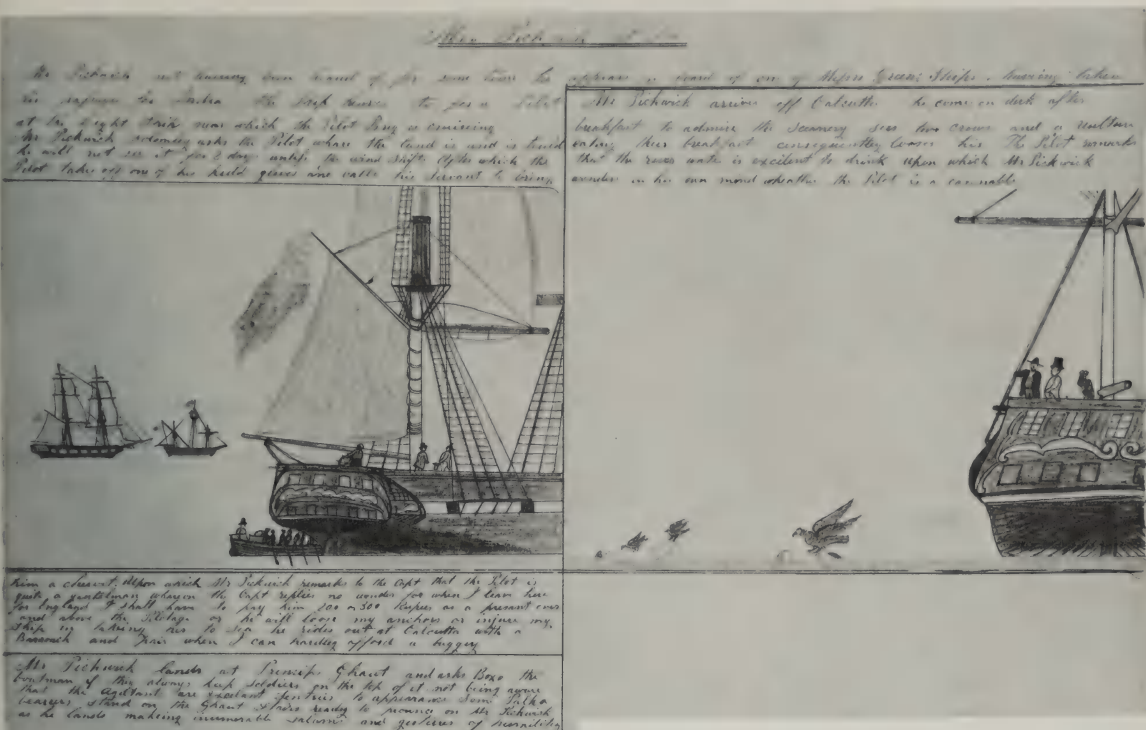 Mr Pickwick not having been heard of for some time he appears on board of one of Messrs Greens Ships. having taken
his passage to India the Ship heaves to for a Pilot
at the Light Ship near which the Pilot Brig is cruising
Mr Pickwick asks the Pilot where the land is
he will not see it for 2 days unless the wind shifts after which the
Pilot takes off one of his kid gloves and calls his servant to bring
him a cheroot. Upon which Mr Pickwick remarks to the Capt that the Pilot is
quite a gentleman whereupon the Capt replies no wonder for when I leave here
for England I shall have to pay him 200 or 300 Rupees as a present over
and above the Pilotage or he will loose my anchors or injure my
Ship in taking her to Sea he rides out at Calcutta with a
Barouch and pair when I can hardley afford a buggey
Mr Pickwick lands at Prinseps Ghaut and asks the
boatman if they always keep Soldiers on the top of it not being aware
that the are sentries to appearance Some Palka
bearers stand on the Ghaut Stairs ready to pounce on Mr Pickwick
as he lands making innumerable salaams and gestures of humility
Mr Pickwick arrives off Calcutta he comes on deck after
breakfast to admire the scenery sees two crows and a vulture
eating their breakfast consequently looses his The Pilot remarks
that the river water is excelent to drink upon which Mr Pickwick
wonders in his own mind wheather the Pilot is a cannable